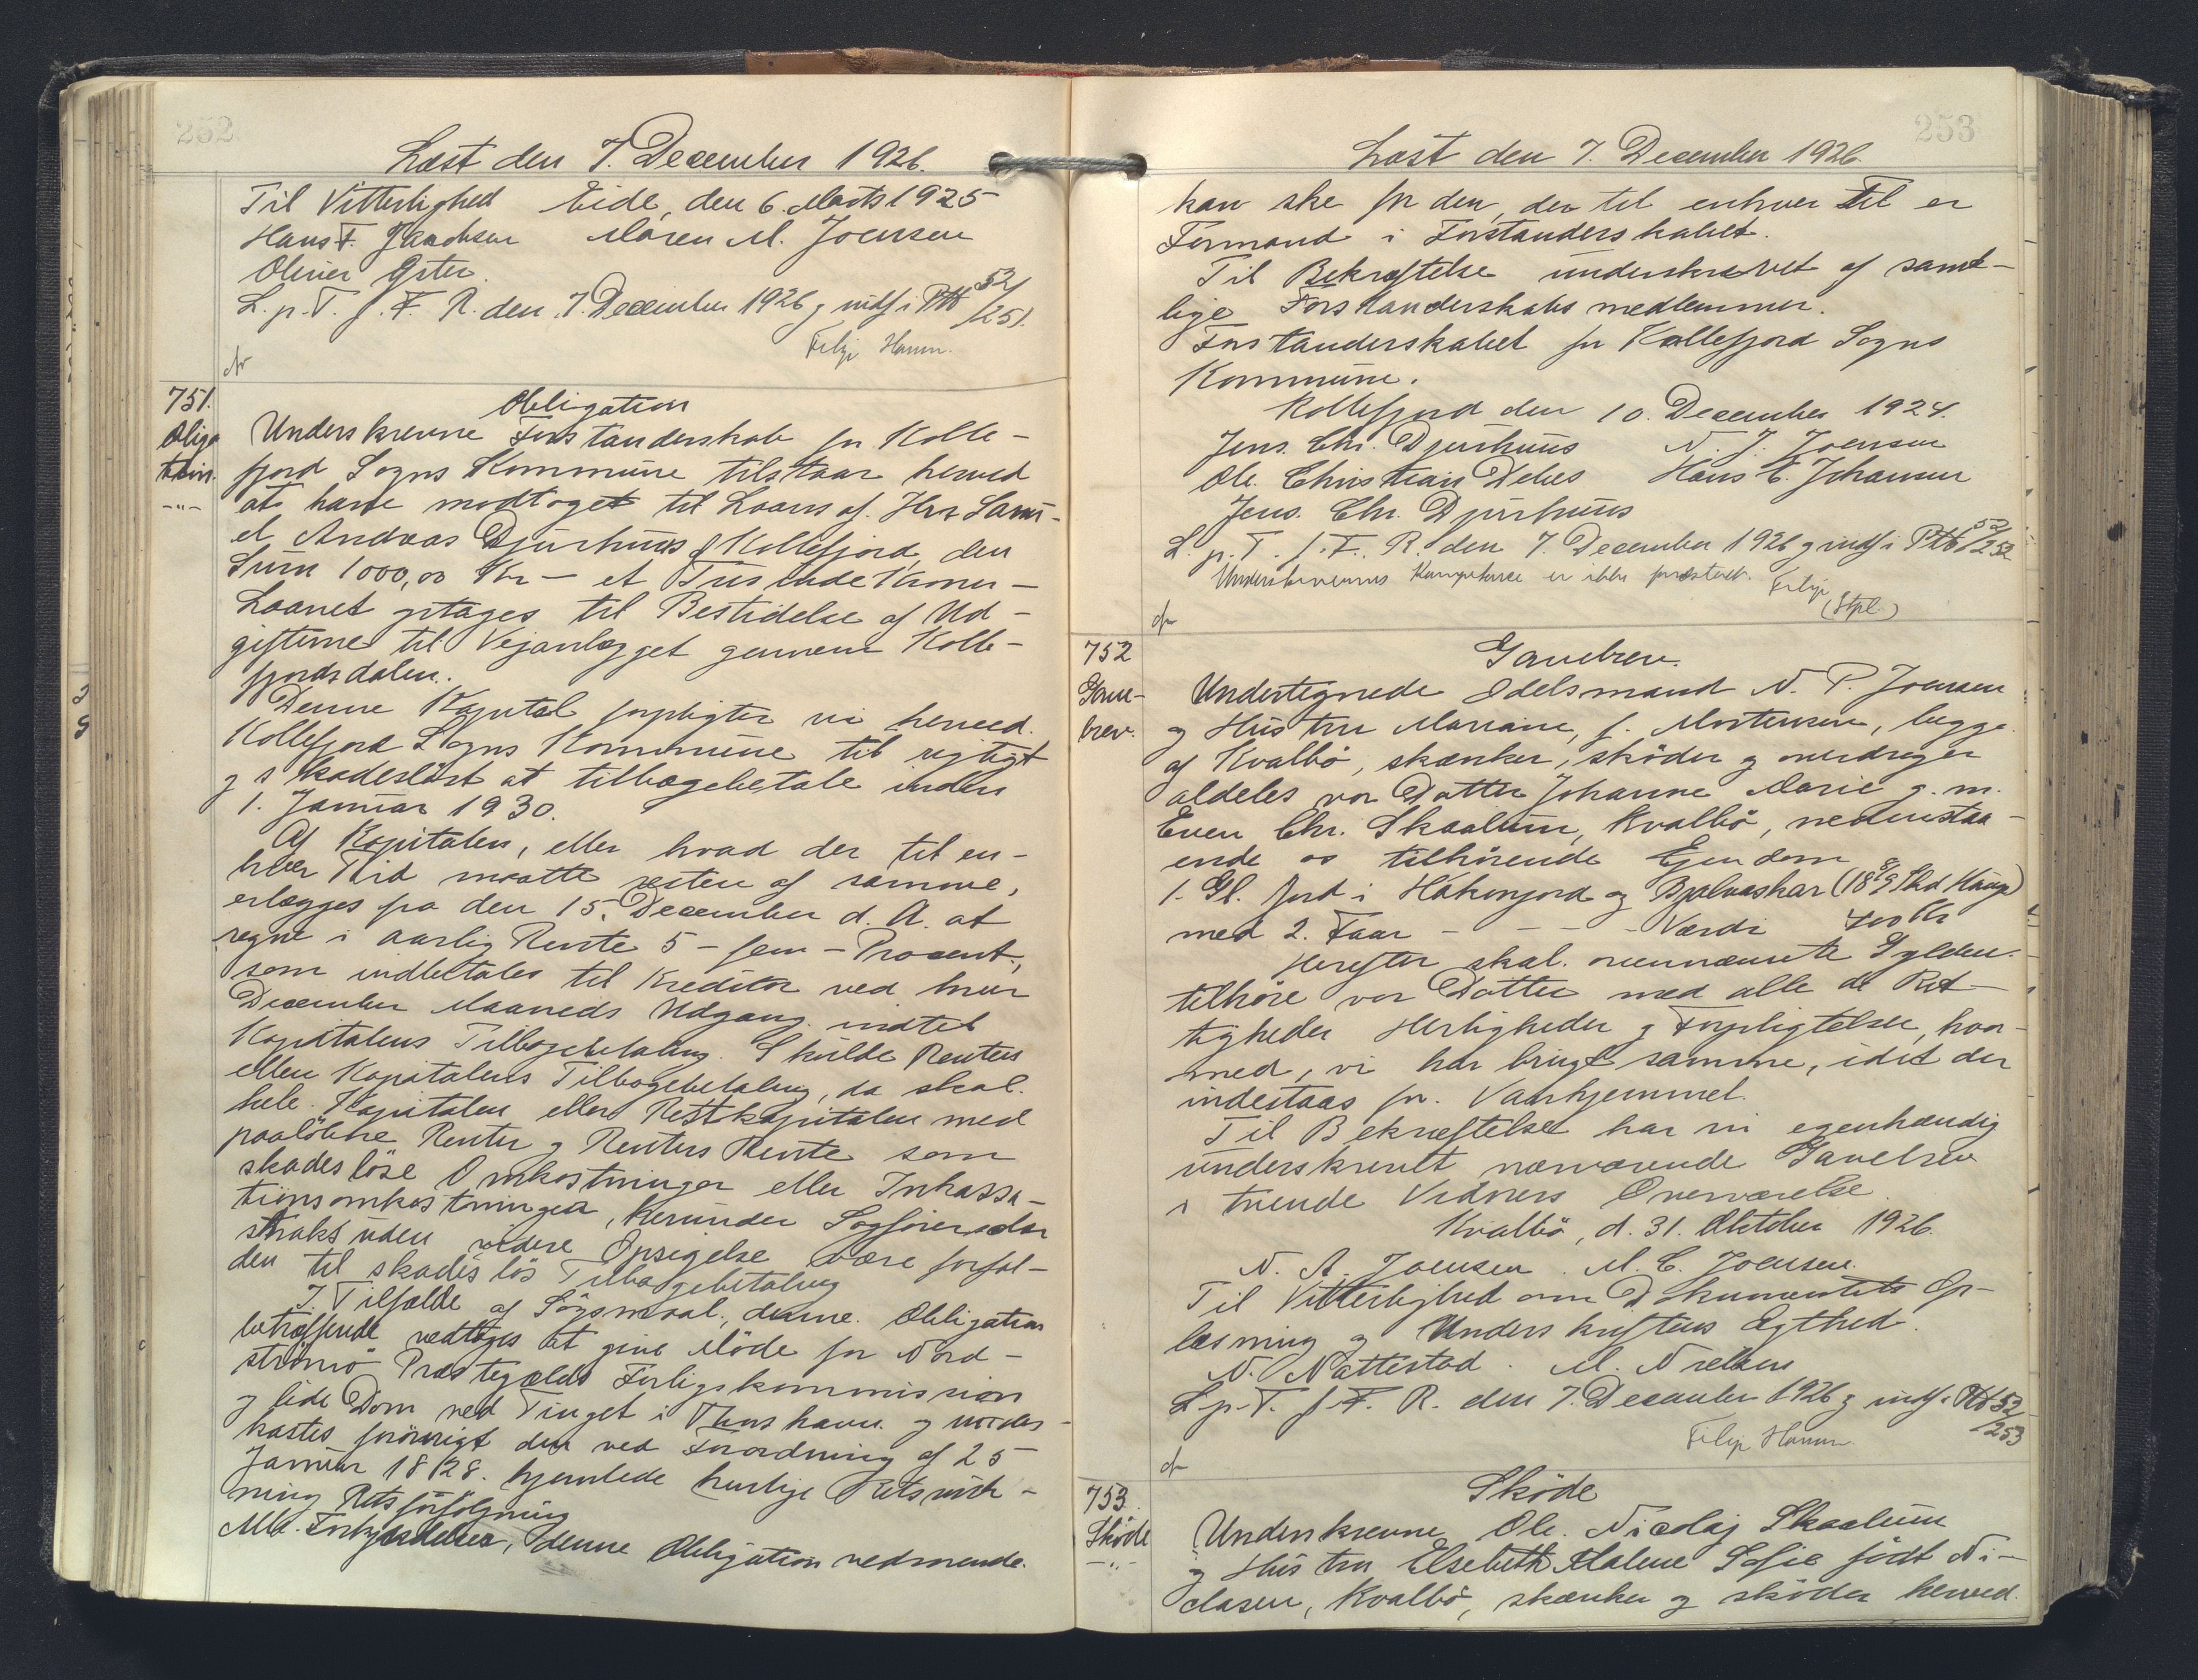 252
Læst den 7. December 1926.
Til Vitterlighed Eide, den 6. Marts 1925
Hans F. Jacobsen Maren M. Joensen
Oliver Øster.
L. p. T. f. F. R. den 7. December 1926 g indf i Ptb 52/251.
Filip Hamm.
751. Obligation
Obliga Underskrevne Forstanderskab for Kolle-
tion. fjord Sogns Kommune tilstaar herved
-"- at have modtaget til Laans af Hrr Samu-
el Andreas Djurhuus f Kollefjord, den
Sum 1000,00 Kr - et Tusinde Kroner -
Laanet optages til Bestridelse af Ud-
gifterne til Vejanlægget gennem Kolle-
fjordsdalen.
Denne Kapital forpligter vi herved
Kollefjord Sogns Kommune til rigtigt
g skadesløst at tilbagebetale inden
1. Januar 1930.
Af Kapitalen, eller hvad der til en-
hver Tid maatte restere af samme,
erlægges fra den 15. December d. A. at
regne i aarlig Rente 5 - fem - Procent,
som indbetales til Kreditor ved hver
December Maaneds Udgang indtil
Kapitalens Tilbagebetaling. Skulde Renten
ellen Kapitalens Tilbagebetaling, da skal
hele Kapitalen eller Restkapitalen med
paaløbne Renter g Renters Rente som
skadesløse Omkostninger eller Inkassa-
tionsomkostninger, herunder Sagførersalær
straks uden videre Opsigelse være forfal-
den til skadesløs Tilbagebetaling
I Tilfælde af Søgsmaal, denne Obligation
betræffende vedtages at give Møde for Nord-
strømø Præstegælds Forligskommission
g lide Dom ved Tinget i Thorshavn g under-
kastes forøvrigt den ved Forordning af 25
Januar 1828. hjemlede hurtige Retsvirk-
ning Retsforfølgning
Md. Forkyndelser, denne Obligation vedrørende.
253
Læst den 7. December 1926.
kan ske for den, der til enhver Til er
Formand i Forstanderskabet.
Til Bekræftelse underskrevet af samt-
lige Forstanderskabs medlemmer.
Forstanderskabet for Kollefjord Sogns
Kommune.
Kollefjord den 10. December 1924.
Jens. Chr. Djurhuus N. J. Joensen
Ole Christian Debes Hans C. Johansen
Jens. Chr. Djurhuus
L. p. T. f. F. R. den 7. December 1926 g indf i Ptb 52/252
Underskrivernes Kompetence er ikke præsteret. Filip
(Stpl.)
752 Gavebrev.
Gave- Undertegnede Odelsmand N. P. Joensen
brev. g Hustru Mariane, f. Mortensen, begge
af Kvalbø, skænker, skøder g overdrager
aldeles vor Datter Johanne Marie g. m.
Even Chr. Skaalum, Kvalbø, nedenstaa-
ende os tilhørende Ejendom
1. Gl. Jord i Hakonjord og Bjalvaskar (18 8/9 Skd Hauge)
med 2. Faar - - - - Værdi 400 Kr
Herefter skal ovennævnte Gylden
tilhøre vor Datter med alle de Ret-
tigheder Herligheder g Forpligtelser, hvor-
med, vi har brugt samme, idet der
indestaas for Vanhjemmel.
Til Bekræftelse har vi egenhændig
underskrevet nærværende Gavebrev
i tvende Vidners Overværelse.
Kvalbø, d. 31. Oktober 1926.
N. A. Joensen. M. C. Joensen.
Til Vitterlighed om Dokumentets Op-
læsning g Underskriftens Ægthed.
N. Nattestad. M. Nielsen
L. p. T. f. F. R. den 7. December 1926 g indf i Ptb 52/253
Filip Hamm.
753. Skøde
Skøde Underskrevne Ole. Nicolaj Skaalum
-"- g Hustru Elsebeth Malene Sofie født Ni-
clasen, Kvalbø, skænker g skøder herved.